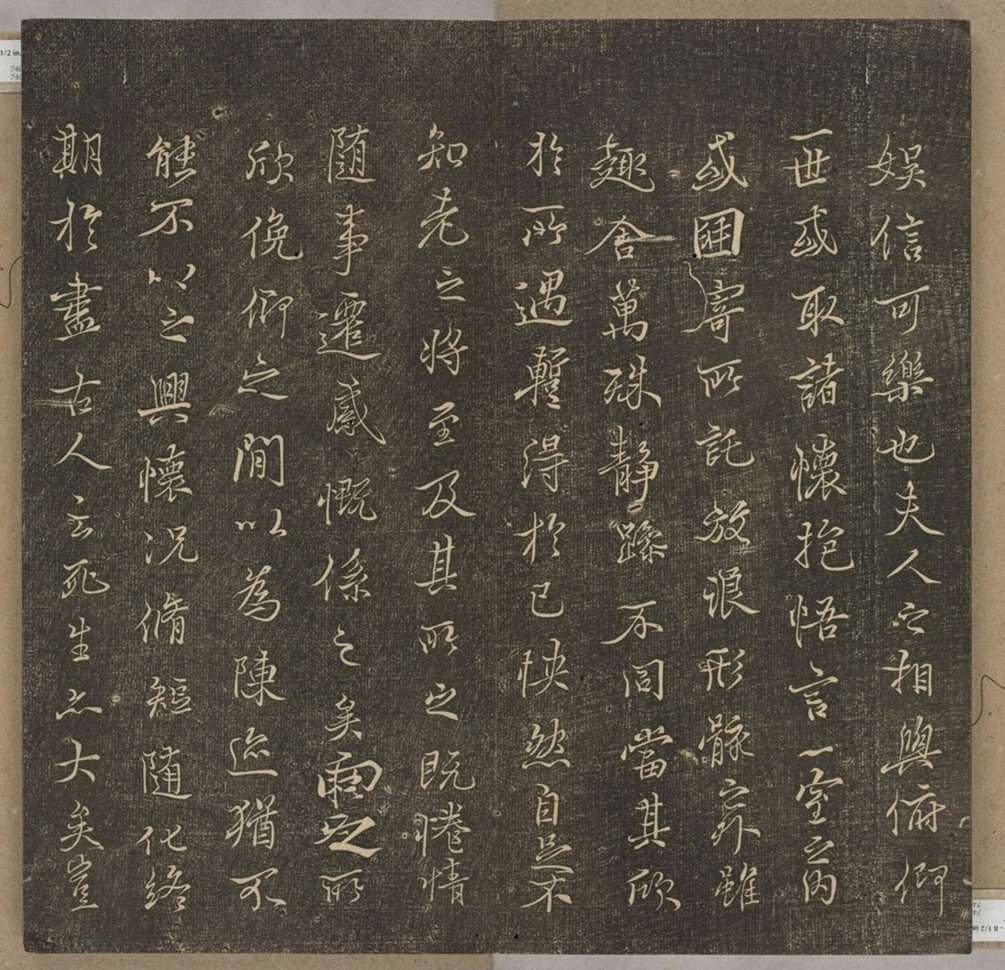 娛信可樂也夫人之相與俯仰
一世或取諸懷抱悟言一室之內
或因寄所託放浪形骸之外雖
趣舍萬殊靜躁不同當其欣
於所遇蹔得於己怏然自足不
知老之將至及其所之既惓情
隨事遷感慨係之矣向之所
欣俛仰之閒以為陳迹猶不
能不以之興懷況脩短隨化終
期於盡古人云死生亦大矣豈
1/2 in.
8 1/2 in